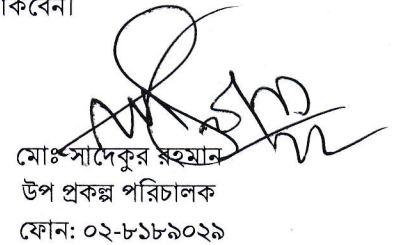 কিবেন।
মোঃ সাদেকুর রহমান
উপ প্রকল্প পরিচালক
ফোন: ০২-৮১৮৯০২৯